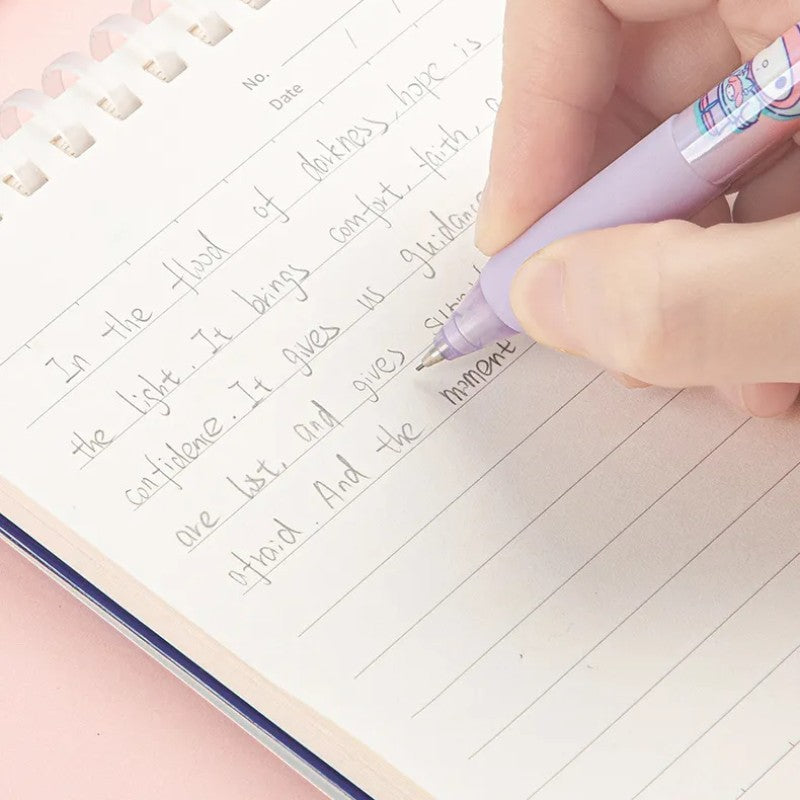 No.
Date / /
In the flood of darkness, hope is
the light. It brings comfort, faith, a
confidence. It gives us guidanc
are lost, and gives
afraid. And the moment